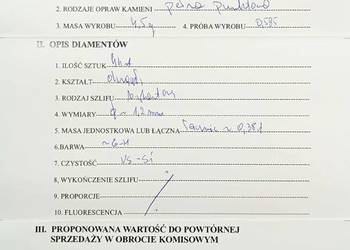 2. RODZAJE OPRAW KAMIENI pełna
3. MASA WYROBU 4,5 g 4. PRÓBA WYROBU 0,585
II. OPIS DIAMENTÓW
1. ILOŚĆ SZTUK
2. KSZTAŁT okrągły
3. RODZAJ SZLIFU
4. WYMIARY ϕ ~ 1,2 mm
5. MASA JEDNOSTKOWA LUB ŁĄCZNA łącznie ~ 0,38
6. BARWA ~ G-H
7. CZYSTOŚĆ VS-Si
8. WYKOŃCZENIE SZLIFU
9. PROPORCJE
10. FLUORESCENCJA
III. PROPONOWANA WARTOŚĆ DO POWTÓRNEJ
SPRZEDAŻY W OBROCIE KOMISOWYM